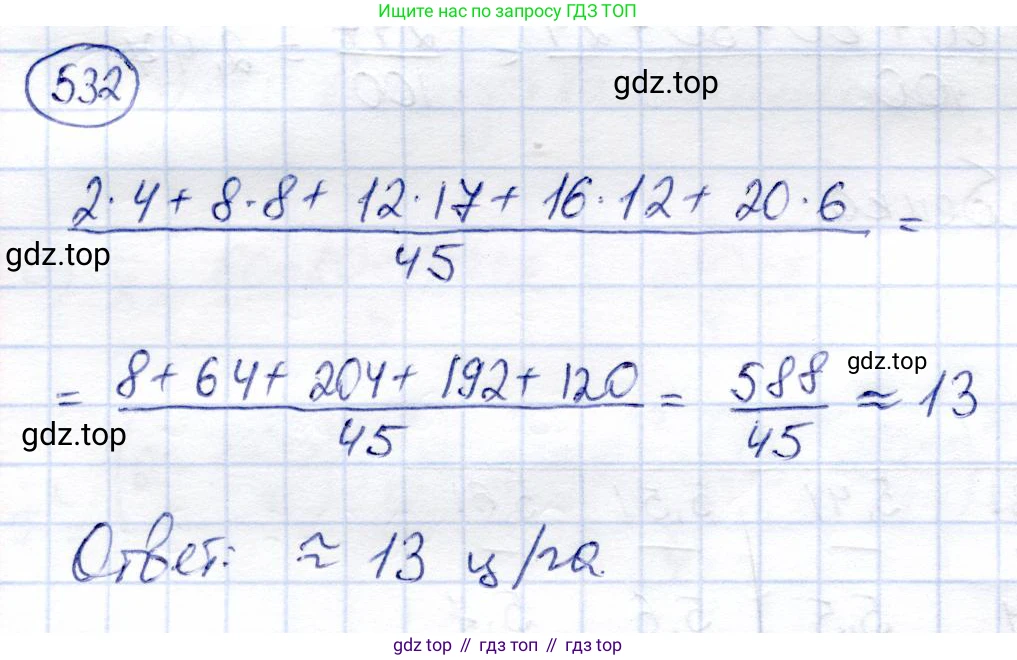 Ищите нас по запросу ГДЗ ТОП
532
gdz.top
2·4+ 8·8+ 12·17+ 16·12+ 20·6 =
gdz.top
45
= 8+ 64+ 204+ 192+ 120 = 588 ≈ 13
gdz.top
45 45
gdz.top
Ответ: ≈ 13 ц/га.
gdz top // гдз топ // gdz top